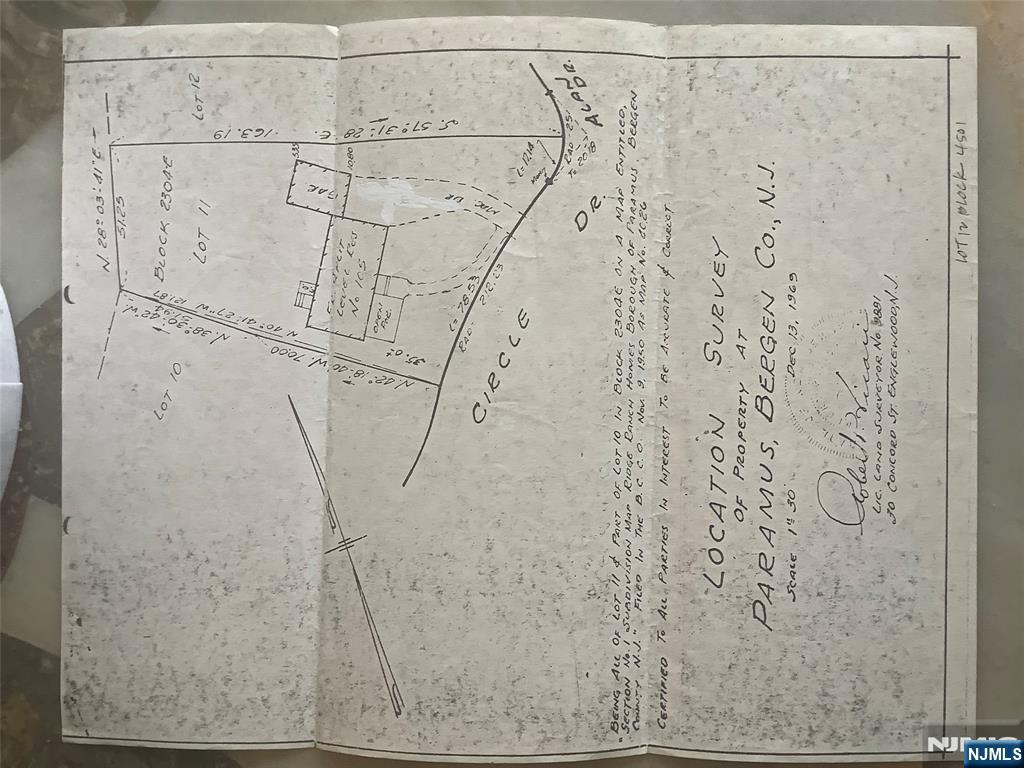 LOT 12
S. 57° 31' 28" E. 163.19
N. 28° 03' 41" E
51.25
BLOCK 2304E
LOT 11
GAR
MAC
LEVEL RES
No 105
OPEN
35.0±
N. 40° 41' 27" W. 121.87
N. 38° 30' 32" W.
51.94
N 42° 18' 40" W 70.00
LOT 10
L 78.53
RAD. 212.23
RAD 25'
CIRCLE
DR
"BEING ALL OF LOT 11 & PART OF LOT 10 IN BLOCK 2304E ON A MAP ENTITLED,
SECTION No. 1 SUBDIVISION MAP RIDGE RANCH HOMES BOROUGH OF PARAMUS BERGEN
COUNTY N.J." FILED IN THE B. C. C. O. NOV. 9, 1950 AS MAP No
CERTIFIED TO ALL PARTIES IN INTEREST TO BE ACCURATE & CORRECT
LOCATION SURVEY
OF PROPERTY AT
PARAMUS, BERGEN CO., N.J.
SCALE 1"= 30' DEC. 13, 1963
LIC. LAND SURVEYOR No 9881
30 CONCORD ST. ENGLEWOOD, N.J.
LOT 12 BLOCK 4501
NJMLS
NJMLS